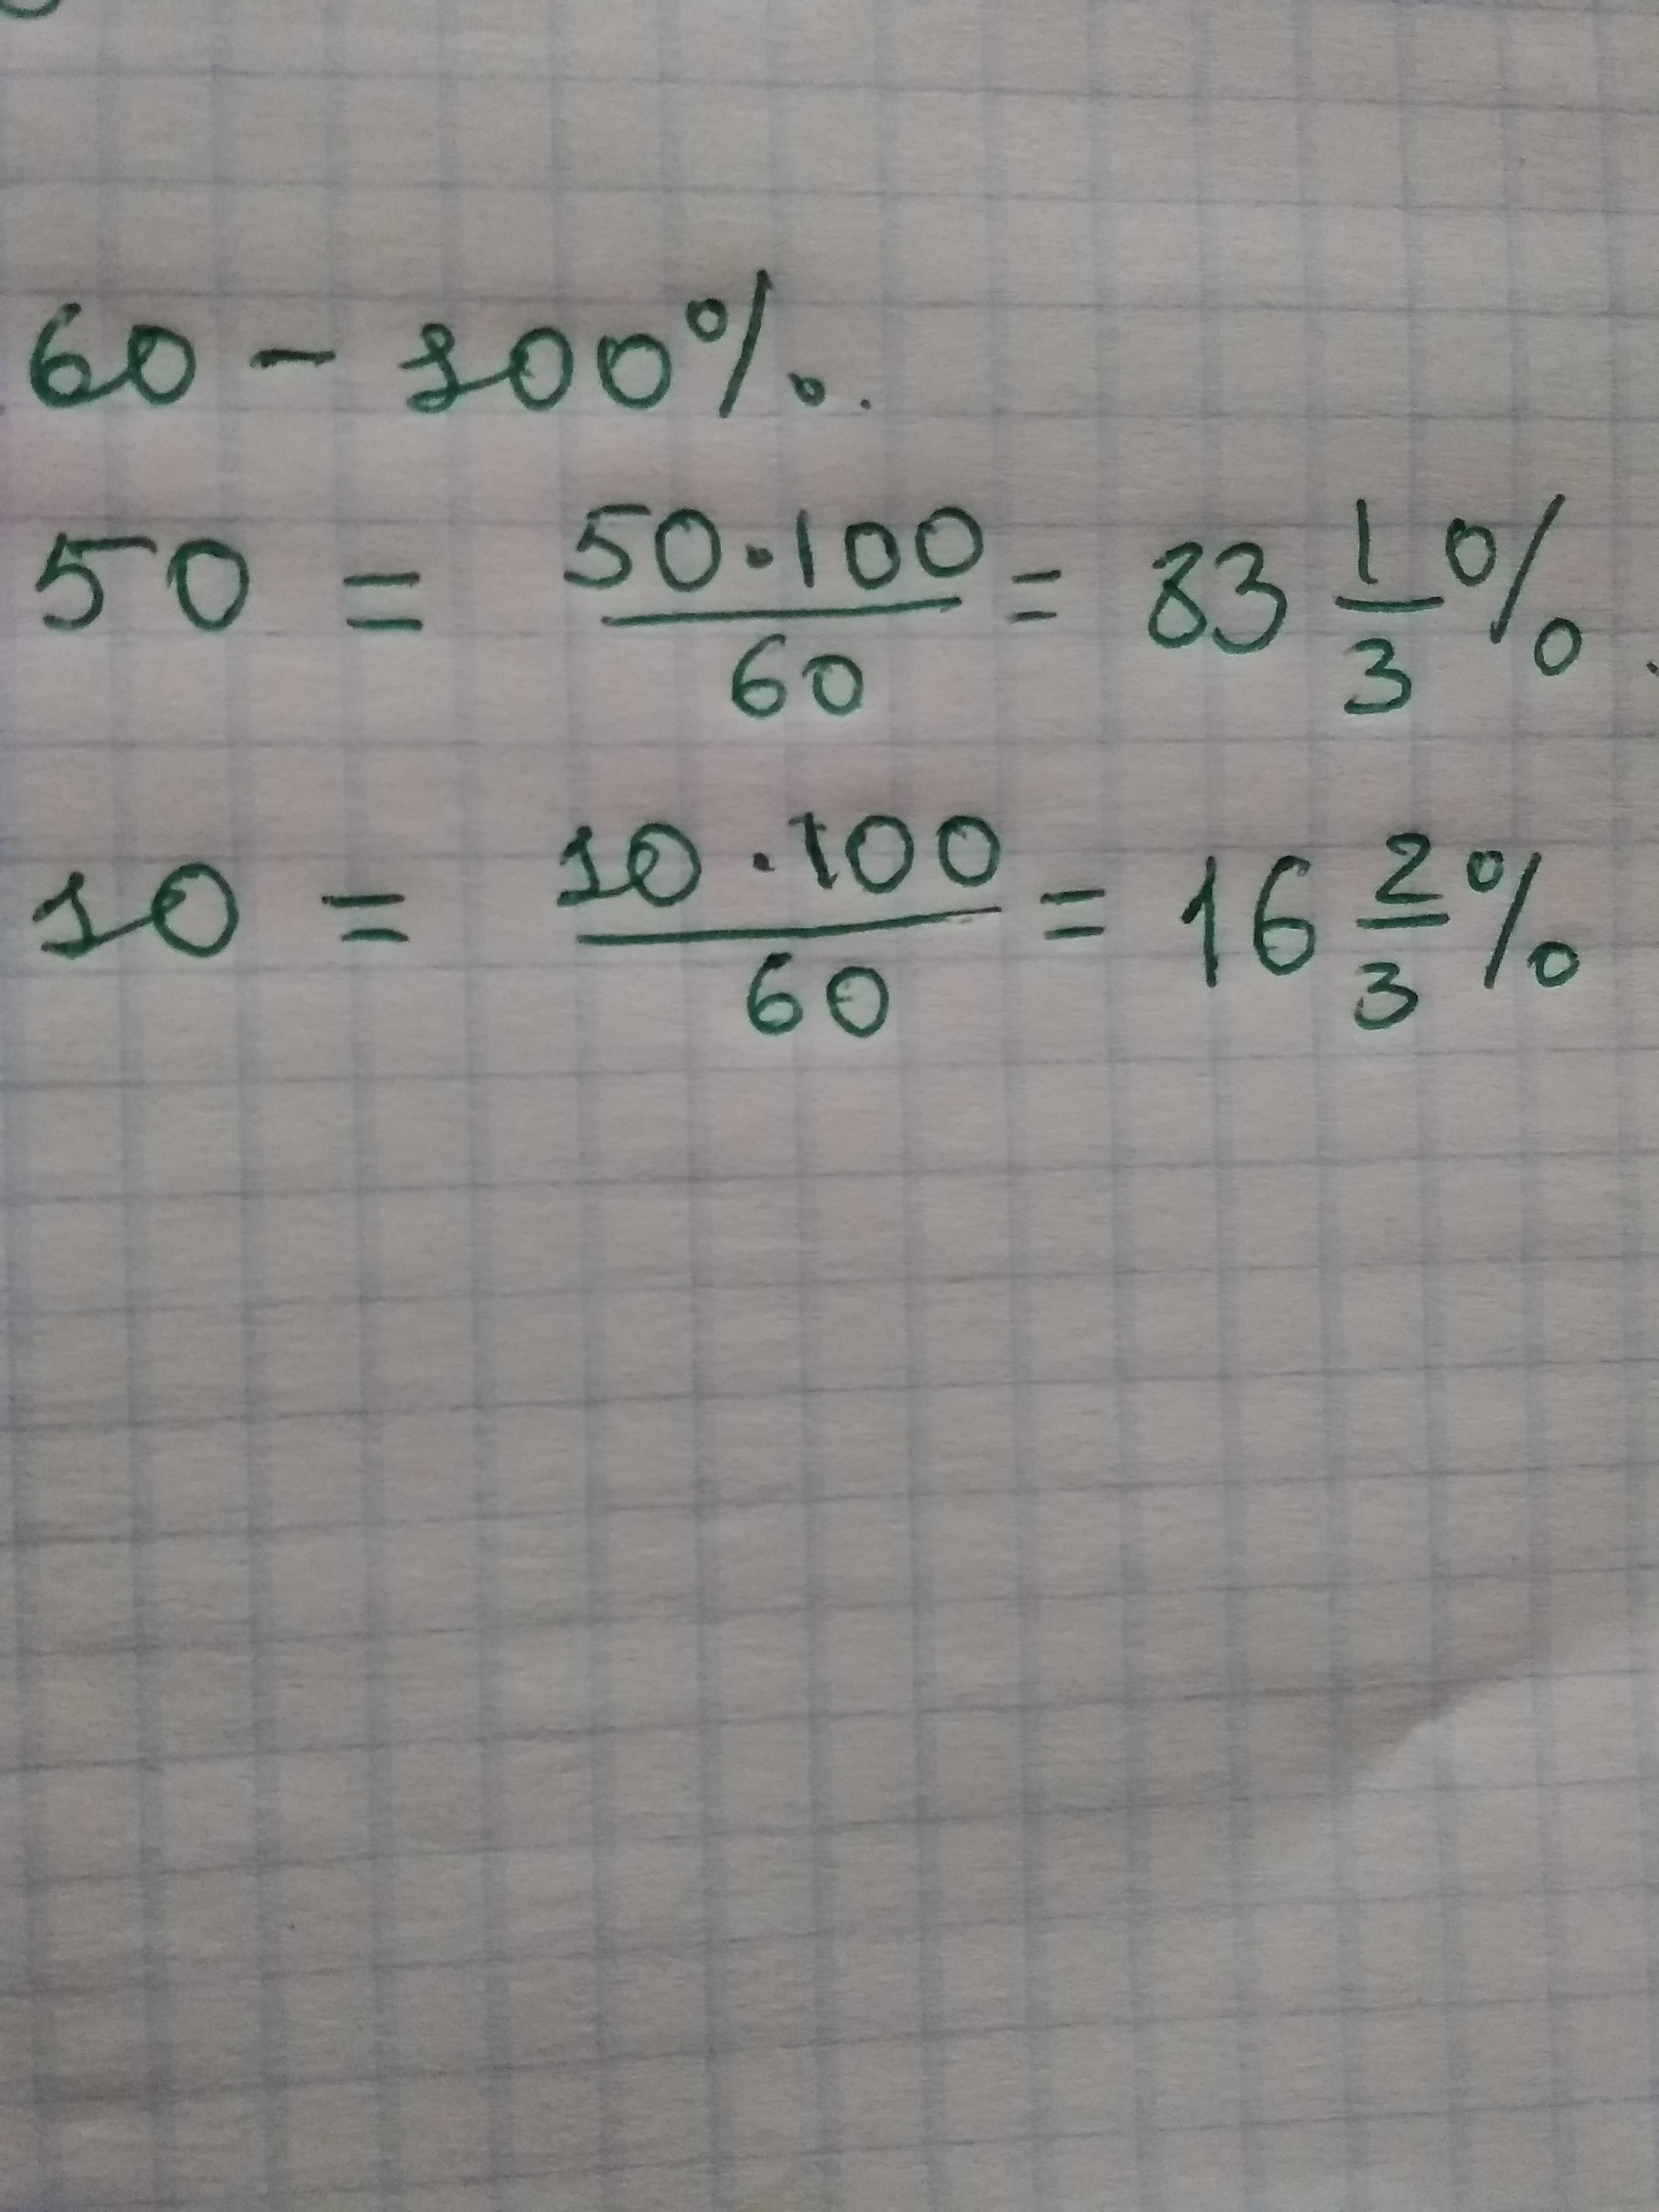 60 - 100%.
50 = 50·100/60 = 83 1/3 %.
10 = 10·100/60 = 16 2/3 %